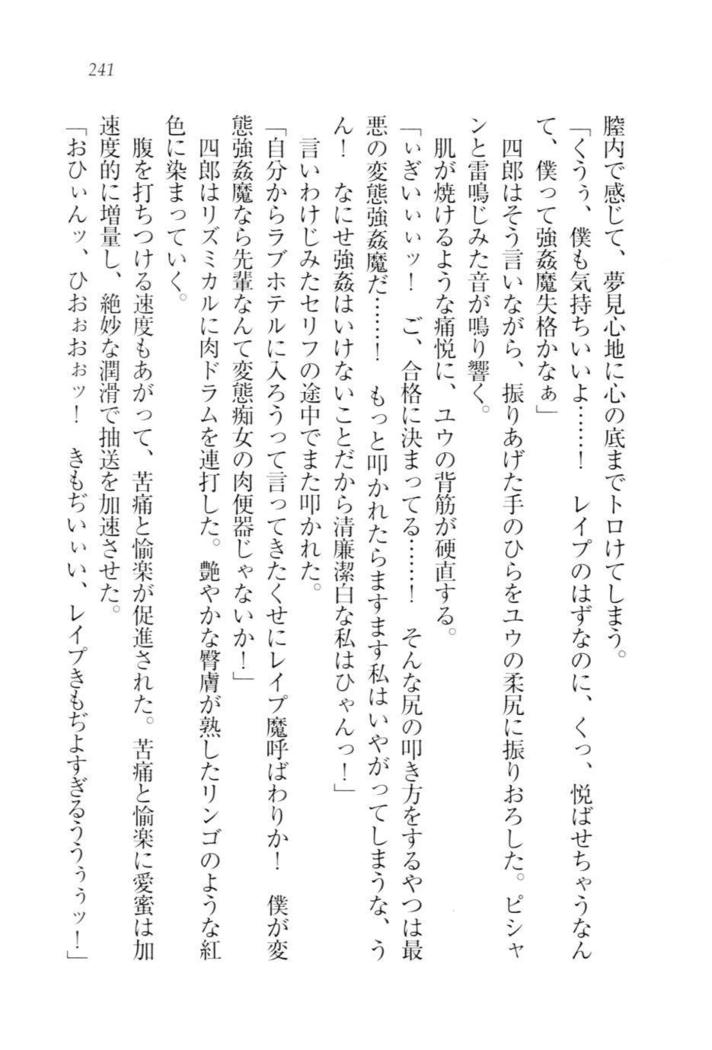 241
膣内で感じて、夢見心地に心の底までトロけてしまう。
「くうぅ、僕も気持ちいいよ……！　レイプのはずなのに、くっ、悦ばせちゃうなん
て、僕って強姦魔失格かなぁ」
　四郎はそう言いながら、振りあげた手のひらをユウの柔尻に振りおろした。ピシャ
ンと雷鳴じみた音が鳴り響く。
　肌が焼けるような痛悦に、ユウの背筋が硬直する。
「ぃぎいぃぃッ！　ご、合格に決まってる……！　そんな尻の叩き方をするやつは最
悪の変態強姦魔だ……！　もっと叩かれたらますます私はいやがってしまうな、う
ん！　なにせ強姦はいけないことだから清廉潔白な私はひゃんっ！」
　言いわけじみたセリフの途中でまた叩かれた。
「自分からラブホテルに入ろうって言ってきたくせにレイプ魔呼ばわりか！　僕が変
態強姦魔なら先輩なんて変態痴女の肉便器じゃないか！」
　四郎はリズミカルに肉ドラムを連打した。艶やかな臀膚が熟したリンゴのような紅
色に染まっていく。
　腹を打ちつける速度もあがって、苦痛と愉楽が促進された。苦痛と愉楽に愛蜜は加
速度的に増量し、絶妙な潤滑で抽送を加速させた。
「おひぃんッ、ひおぉおぉッ！　きもぢいぃい、レイプきもぢよすぎるううぅぅッ！」